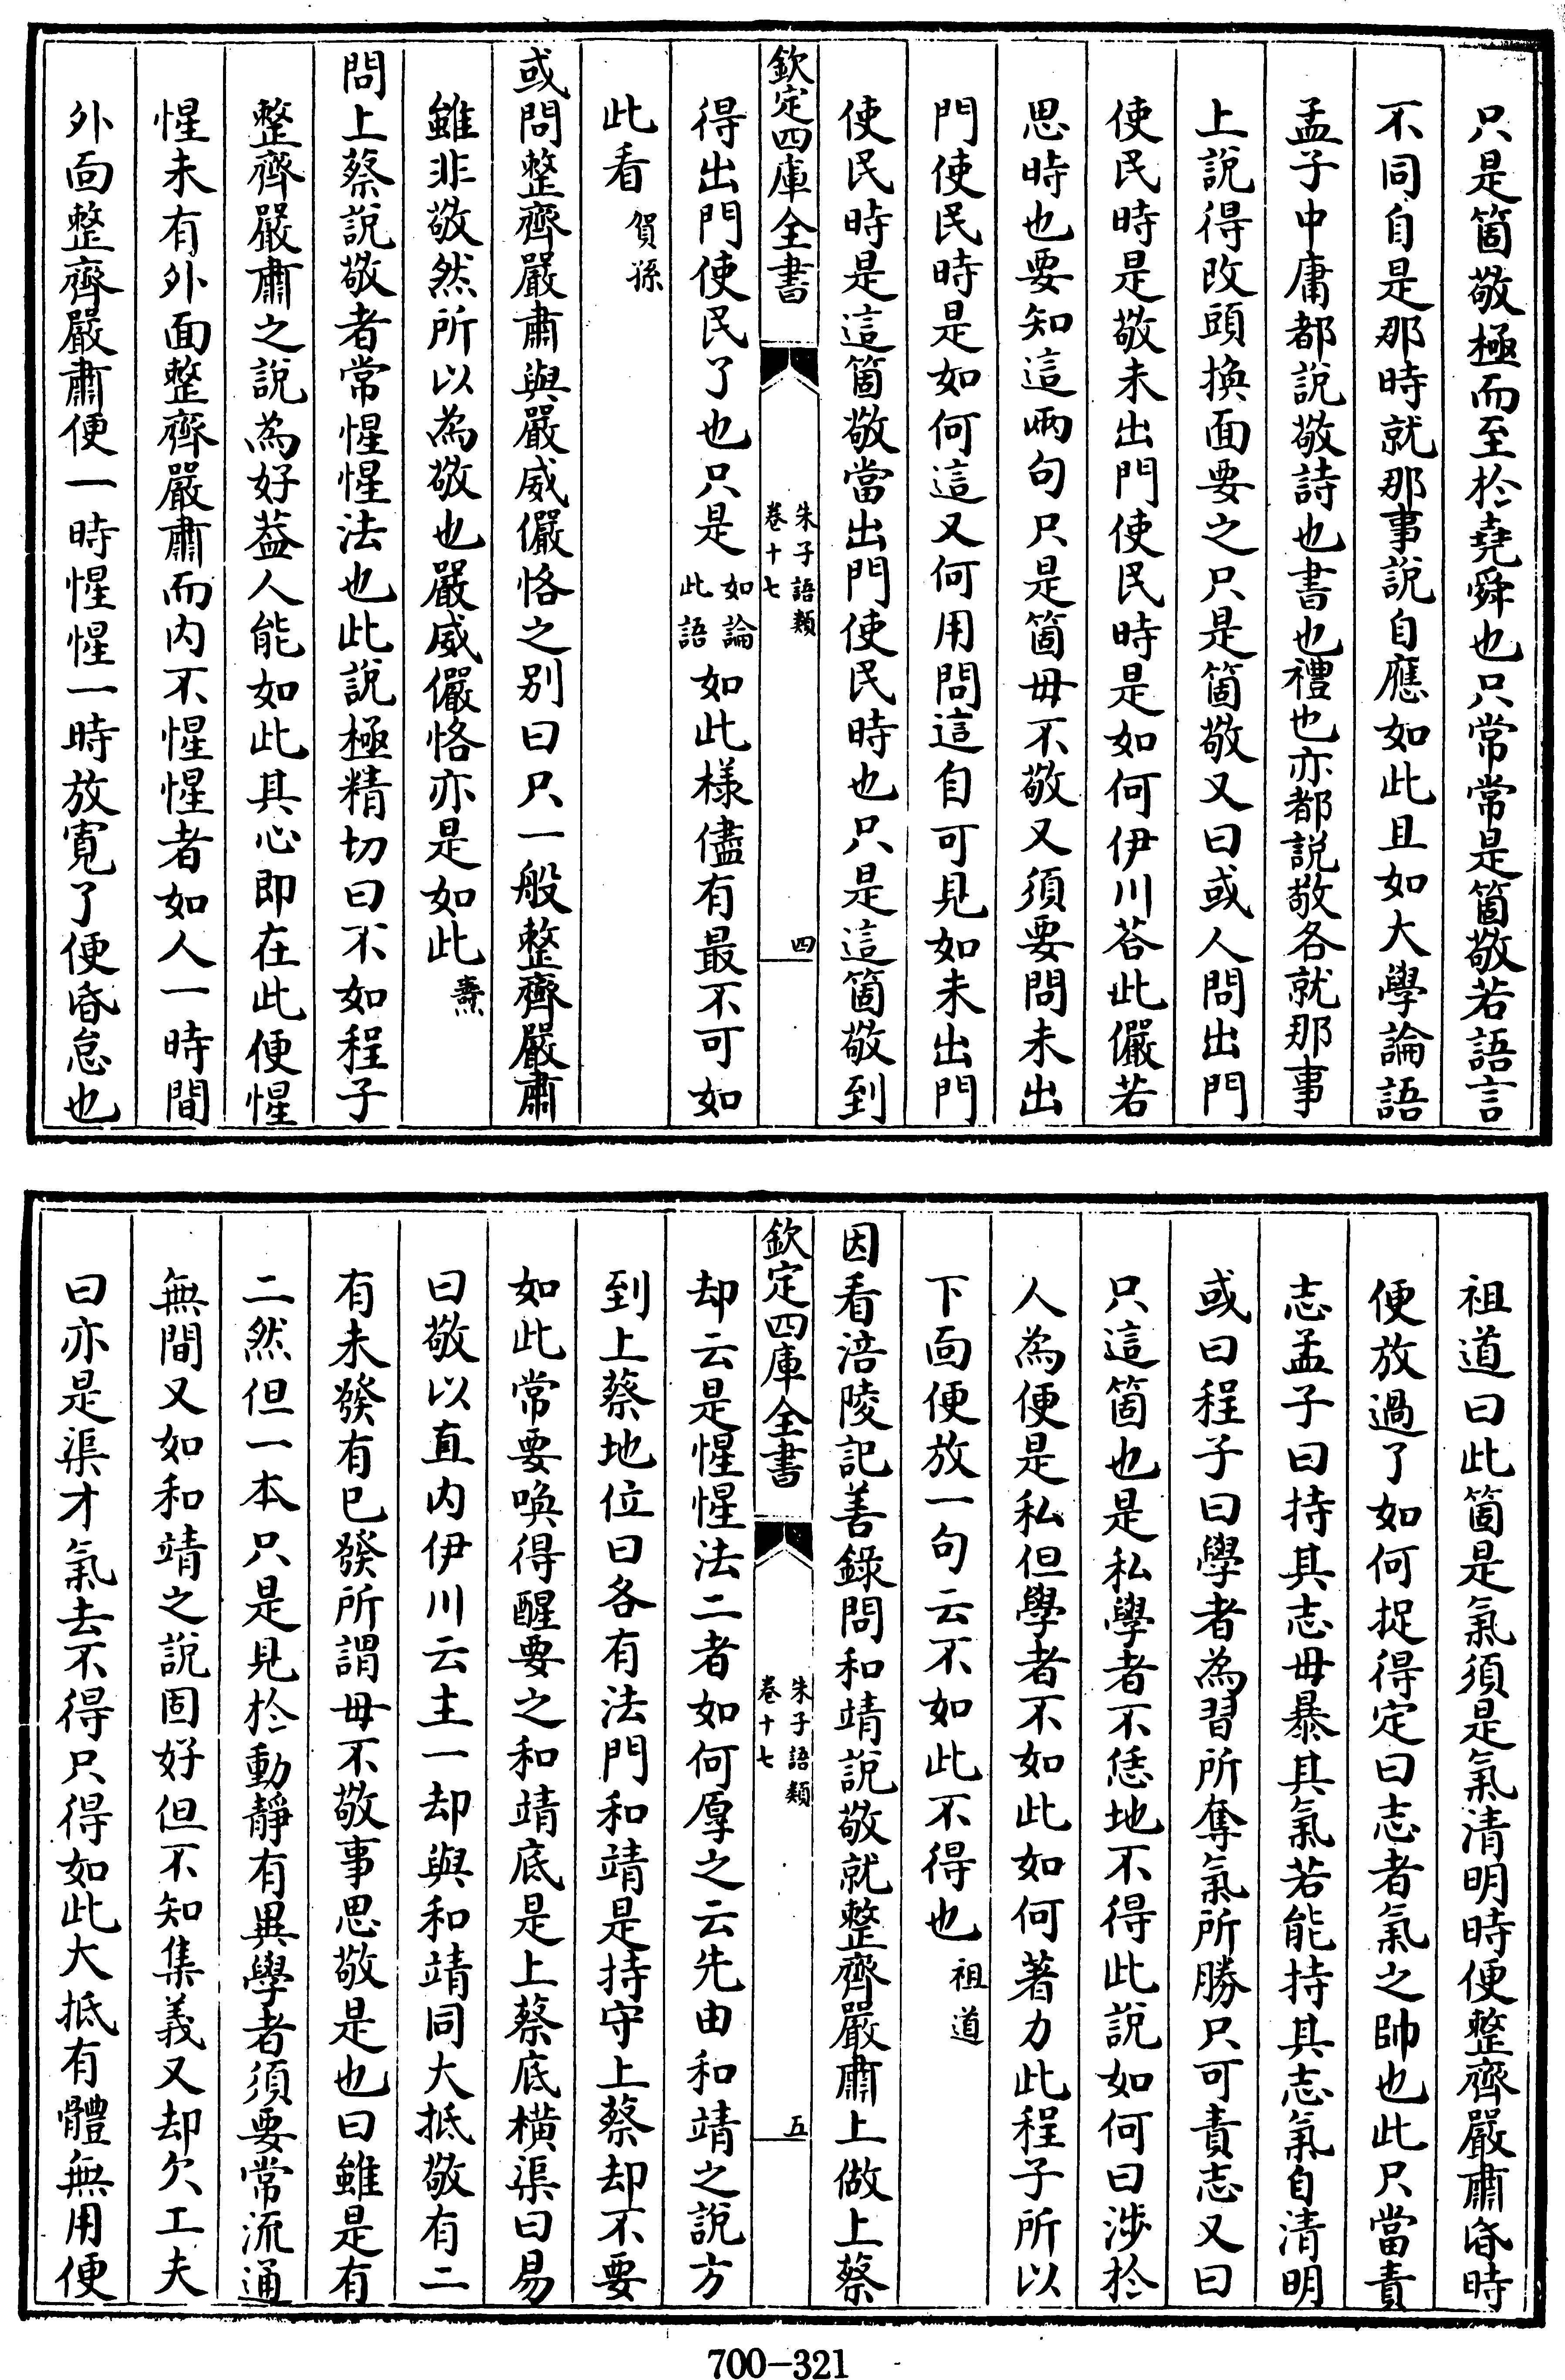 只是箇敬極而至於堯舜也只常常是箇敬若語言
不同自是那時就那事說自應如此且如大學論語
孟子中庸都說敬詩也書也禮也亦都說敬各就那事
上說得改頭換面要之只是箇敬又曰或人問出門
使民時是敬未出門使民時是如何伊川荅此儼若
思時也要知這兩句只是箇毋不敬又須要問未出
門使民時是如何這又何用問這自可見如未出門
使民時是這箇敬當出門使民時也只是這箇敬到
欽定四庫全書
朱子語類
卷十七
四
得出門使民了也只是如論此語如此様儘有最不可如
此看賀孫
或問整齊嚴肅與嚴威儼恪之别曰只一般整齊嚴肅
雖非敬然所以為敬也嚴威儼恪亦是如此燾
問上蔡說敬者常惺惺法也此說極精切曰不如程子
整齊嚴肅之說為好葢人能如此其心即在此便惺
惺未有外面整齊嚴肅而内不惺惺者如人一時間
外面整齊嚴肅便一時惺惺一時放寛了便昏怠也
祖道曰此箇是氣須是氣清明時便整齊嚴肅昏時
便放過了如何捉得定曰志者氣之帥也此只當責
志孟子曰持其志毋暴其氣若能持其志氣自清明
或曰程子曰學者為習所奪氣所勝只可責志又曰
只這箇也是私學者不恁地不得此說如何曰涉於
人為便是私但學者不如此如何著力此程子所以
下面便放一句云不如此不得也祖道
因看涪陵記善録問和靖説敬就整齊嚴肅上做上蔡
欽定四庫全書
朱子語類
卷十七
五
却云是惺惺法二者如何厚之云先由和靖之說方
到上蔡地位曰各有法門和靖是持守上蔡却不要
如此常要喚得醒要之和靖底是上蔡底横渠曰易
曰敬以直内伊川云主一却與和靖同大抵敬有二
有未發有已發所謂毋不敬事思敬是也曰雖是有
二然但一本只是見於動靜有異學者須要常流通
無間又如和靖之說固好但不知集義又却欠工夫
曰亦是渠才氣去不得只得如此大抵有體無用便
700-321